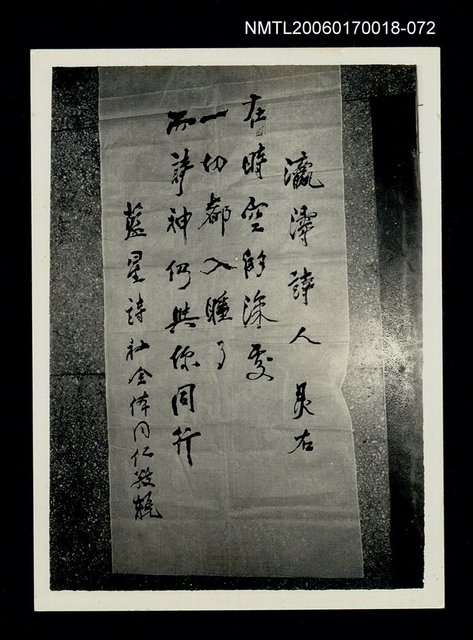 NMTL20060170018-072
瀛濤詩人 灵右
在時空的深处
一切都入睡了
而詩神仍與你同行
藍星詩社全体同仁敬輓